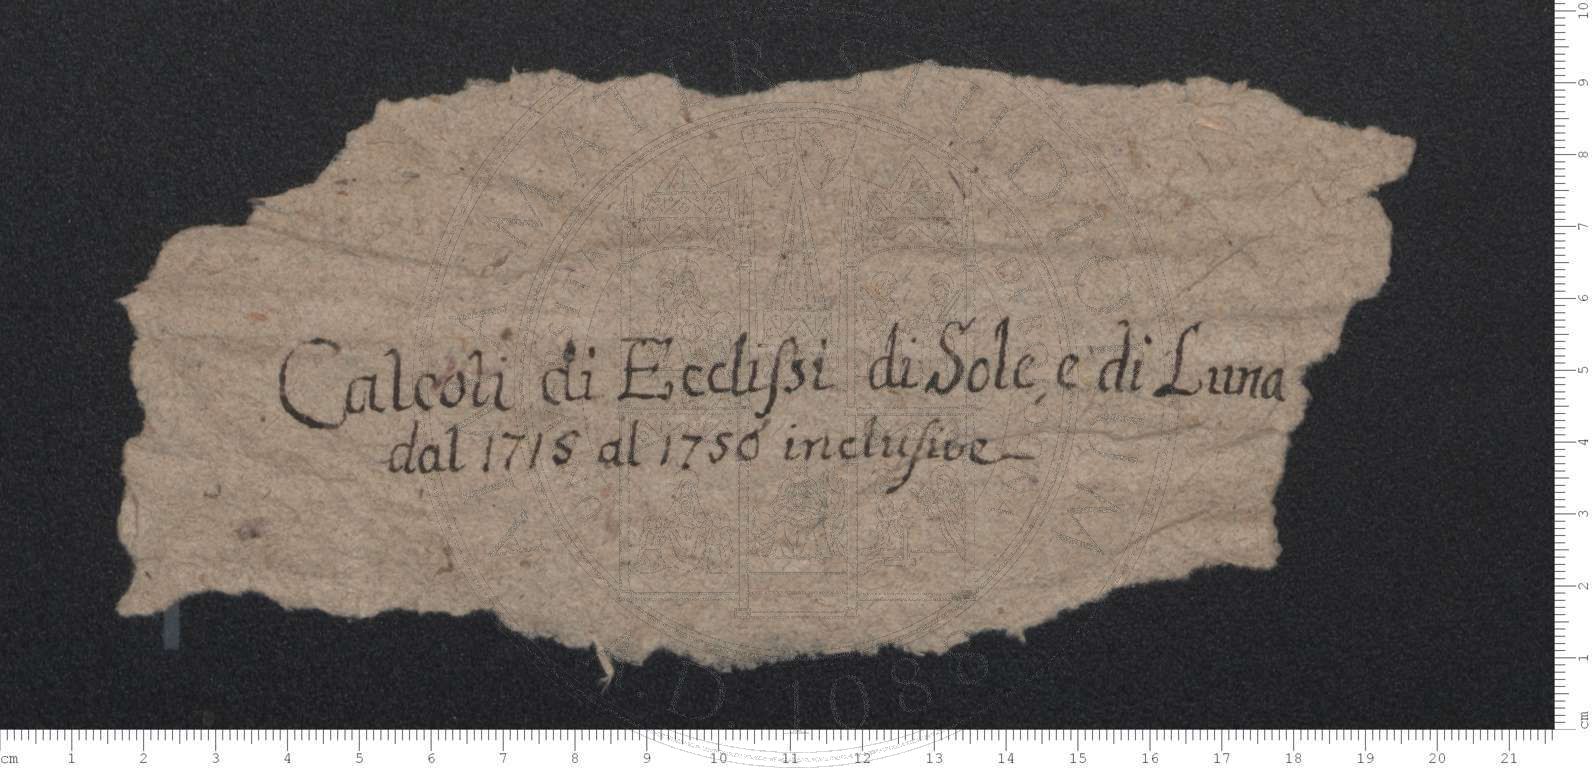 Calcoli di Ecclißi di Sole, e di Luna
dal 1715 al 1750 inclusive
ALMA MATER STUDIORUM
A.D. 1088
cm 1 2 3 4 5 6 7 8 9 10 11 12 13 14 15 16 17 18 19 20 21
cm 1 2 3 4 5 6 7 8 9 10